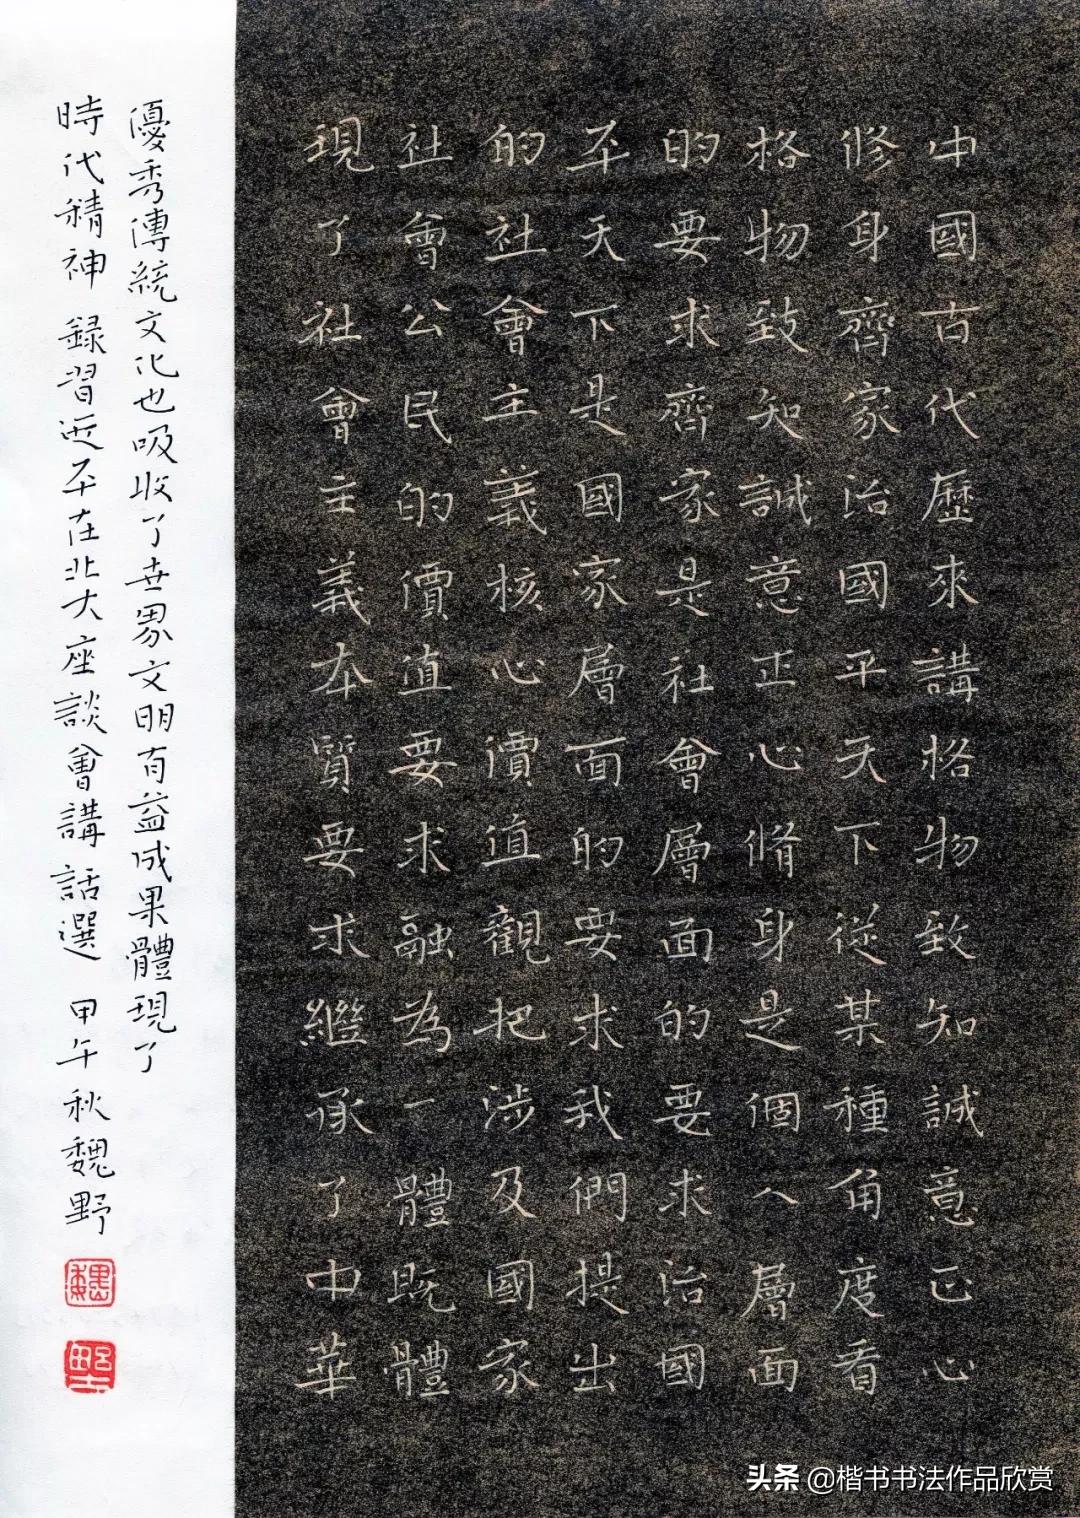 中國古代歷來講格物致知誠意正心
修身齊家治國平天下從某種角度看
格物致知誠意正心脩身是個人層面
的要求齊家是社會層面的要求治國
平天下是國家層面的要求我們提出
的社會主義核心價值觀把涉及國家
社會公民的價值要求融為一體既體
現了社會主義本質要求繼承了中華
優秀傳統文化也吸收了世界文明有益成果體現了
時代精神 録習近平在北大座談會講話選 甲午秋魏野
魏
野
头条 @楷书书法作品欣赏